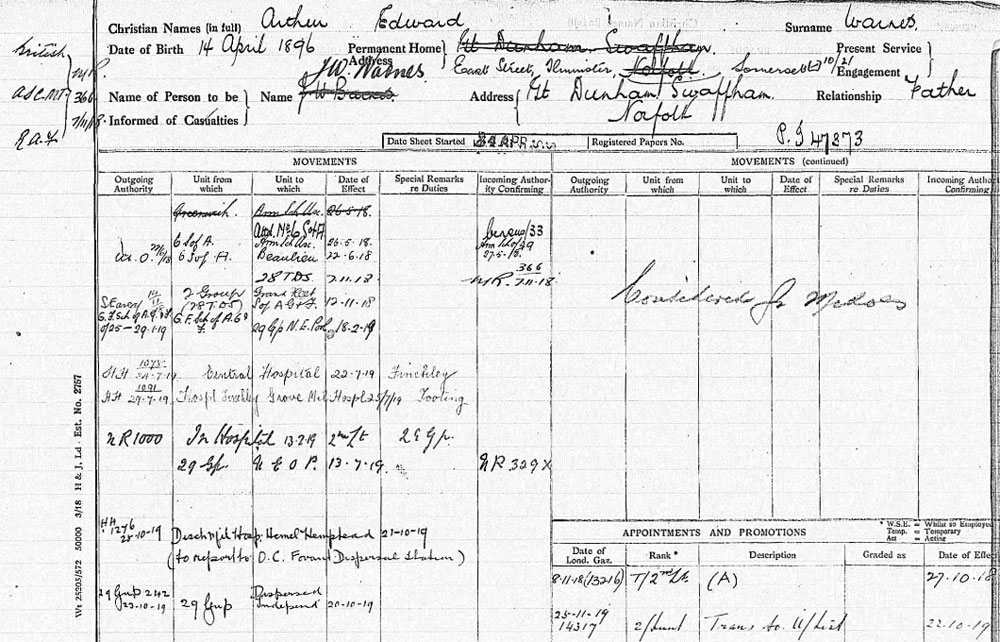 Christian Names (in full) Arthur Edward Surname Warnes
Date of Birth 14 April 1896 Permanent Home Address Gt Dunham Swaffham Norfolk
East Street, Ilminster, Somerset
Present Service Engagement
British
A.S.C. M.T.
366
7/11/18
R.A.F
Name of Person to be Informed of Casualties
Name J W Barnes
J.W. Warnes
Address Gt Dunham Swaffham Norfolk
Relationship Father
Date Sheet Started
Registered Papers No. P.I 47873
MOVEMENTS
MOVEMENTS (continued)
Outgoing Authority Unit from which Unit to which Date of Effect Special Remarks re Duties Incoming Authority Confirming
Outgoing Authority Unit from which Unit to which Date of Effect Special Remarks re Duties Incoming Author Confirming
Greenwich. 26-5-18.
6 S of A. 26-5-18.
6 S of A. Beaulieu 22-6-18
28 TDS 7.11.18 366 7-11-18
2 Group (28 TDS) Grand Fleet S of A G & F 12-11-18
0/25 - 29-1-19 29 Gp 18-2-19
1075 24-7-19 Central Hospital 22-7-19 Finchley
HH 1091 29-7-19 Hospl Finchley Grove Mil Hospl 25/7/19 Tooting
NR 1000 In Hospital 13-2-19 2nd Lt 29 Gp.
29 Gp. 13-7-19. NR 329X
Considered for Medals
HH 1276 25-10-19 Disch Hosp, Hemel Hempstead 21-10-19
(to report to O.C. Fovant Dispersal Station)
29 Grup 242 22-10-19 29 Grup Dispersed 20-10-19
Wt 25205/572 50000 3/18 H & J, Ld - Est. No. 2757
* W.S.E. = Whilst so Employed
Temp. = Temporary
Act = Acting
APPOINTMENTS AND PROMOTIONS
Date of Lond. Gaz. Rank * Description Graded as Date of Effect
8-11-18 (13216) T/2nd Lt (A) 27-10-18
25-11-19 14317 2/Lieut Trans to U/List 22-10-19